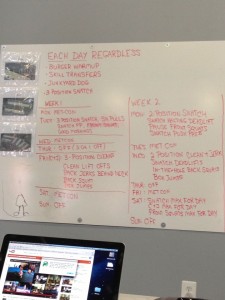 EACH DAY REGARDLESS
- BURGENER WARMUP
- SKILL TRANSFERS
- JUNKYARD DOG
- 3 POSITION SNATCH
WEEK 1
MON: METCON
TUES: 3 POSITION SNATCH, SN PULLS
WED: METCON
THUR: OFF
FRIDAY: 3-POSITION CLEAN
CLEAN LIFT OFFS
JERKS BEHIND NECK
BACK SQUAT
BOX JUMPS
SAT: METCON
SUN: OFF
WEEK 2
MON: 2 POSITION SNATCH
SNATCH DEADLIFT
PAUSE FRONT SQUATS
SNATCH PUSH PRESS
TUES: METCON
WED: 2 POSITION CLEAN + JERK
CLEAN DEADLIFT
BACK SQUAT
BOX JUMPS
THUR: OFF
FRI: METCON
SAT: SNATCH MAX FOR DAY
CJ MAX FOR DAY
FRONT SQUATS MAX FOR DAY
SUN: OFF